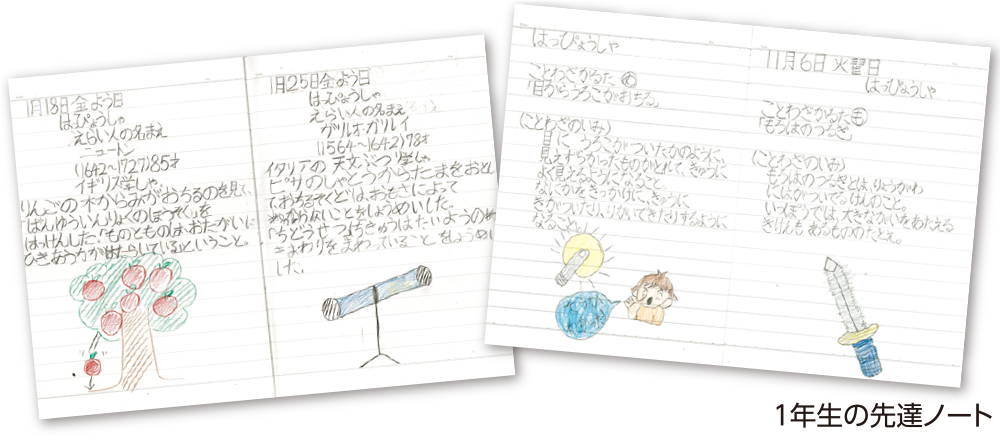 1月18日金よう日
はっぴょうしゃ
えらい人の名まえ
ニュートン
(1642〜1727)85才
イギリス学しゃ。
りんごの木からみがおちるのを見て、
「ばんゆういんりょくのほうそく」を
はっけんした。「ものとものは、おたがいに
ひきあう力がはたらしている」ということ。
1月25日金よう日
はっぴょうしゃ
えらい人の名まえ
ガリレオ・ガリレイ
(1564〜1642)78才
イタリアの天文ぶつり学しゃ
ピサのしゃとうからたまをおとし
て、おちるそくどは、おもさによって
かわらないことをしょうめいした。
「ちどうせつ」ちきゅうはたいようの
まわりをまわっていることをしょうめい
した。
はっぴょうしゃ
ことわざかるた め
「目からうろこがおちる。」
(ことわざのいみ)
目に うろこがついたかのように、
見えずらかったものがとれて、きゅうに
よく見えるようになること。
なにかをきっかけに、きゅうに
きがついたり、りかいできたりするように
なること。
11月6日 火曜日
はっぴょうしゃ
ことわざかるた も
「もろはのつるぎ」
(ことわざのいみ)
もろはのつるぎとは、りょうがわ
にはがついてるけんのこと。
いっぽうでは、大きながいをあたえる
きけんもあるもののたとえ。
1年生の先達ノート